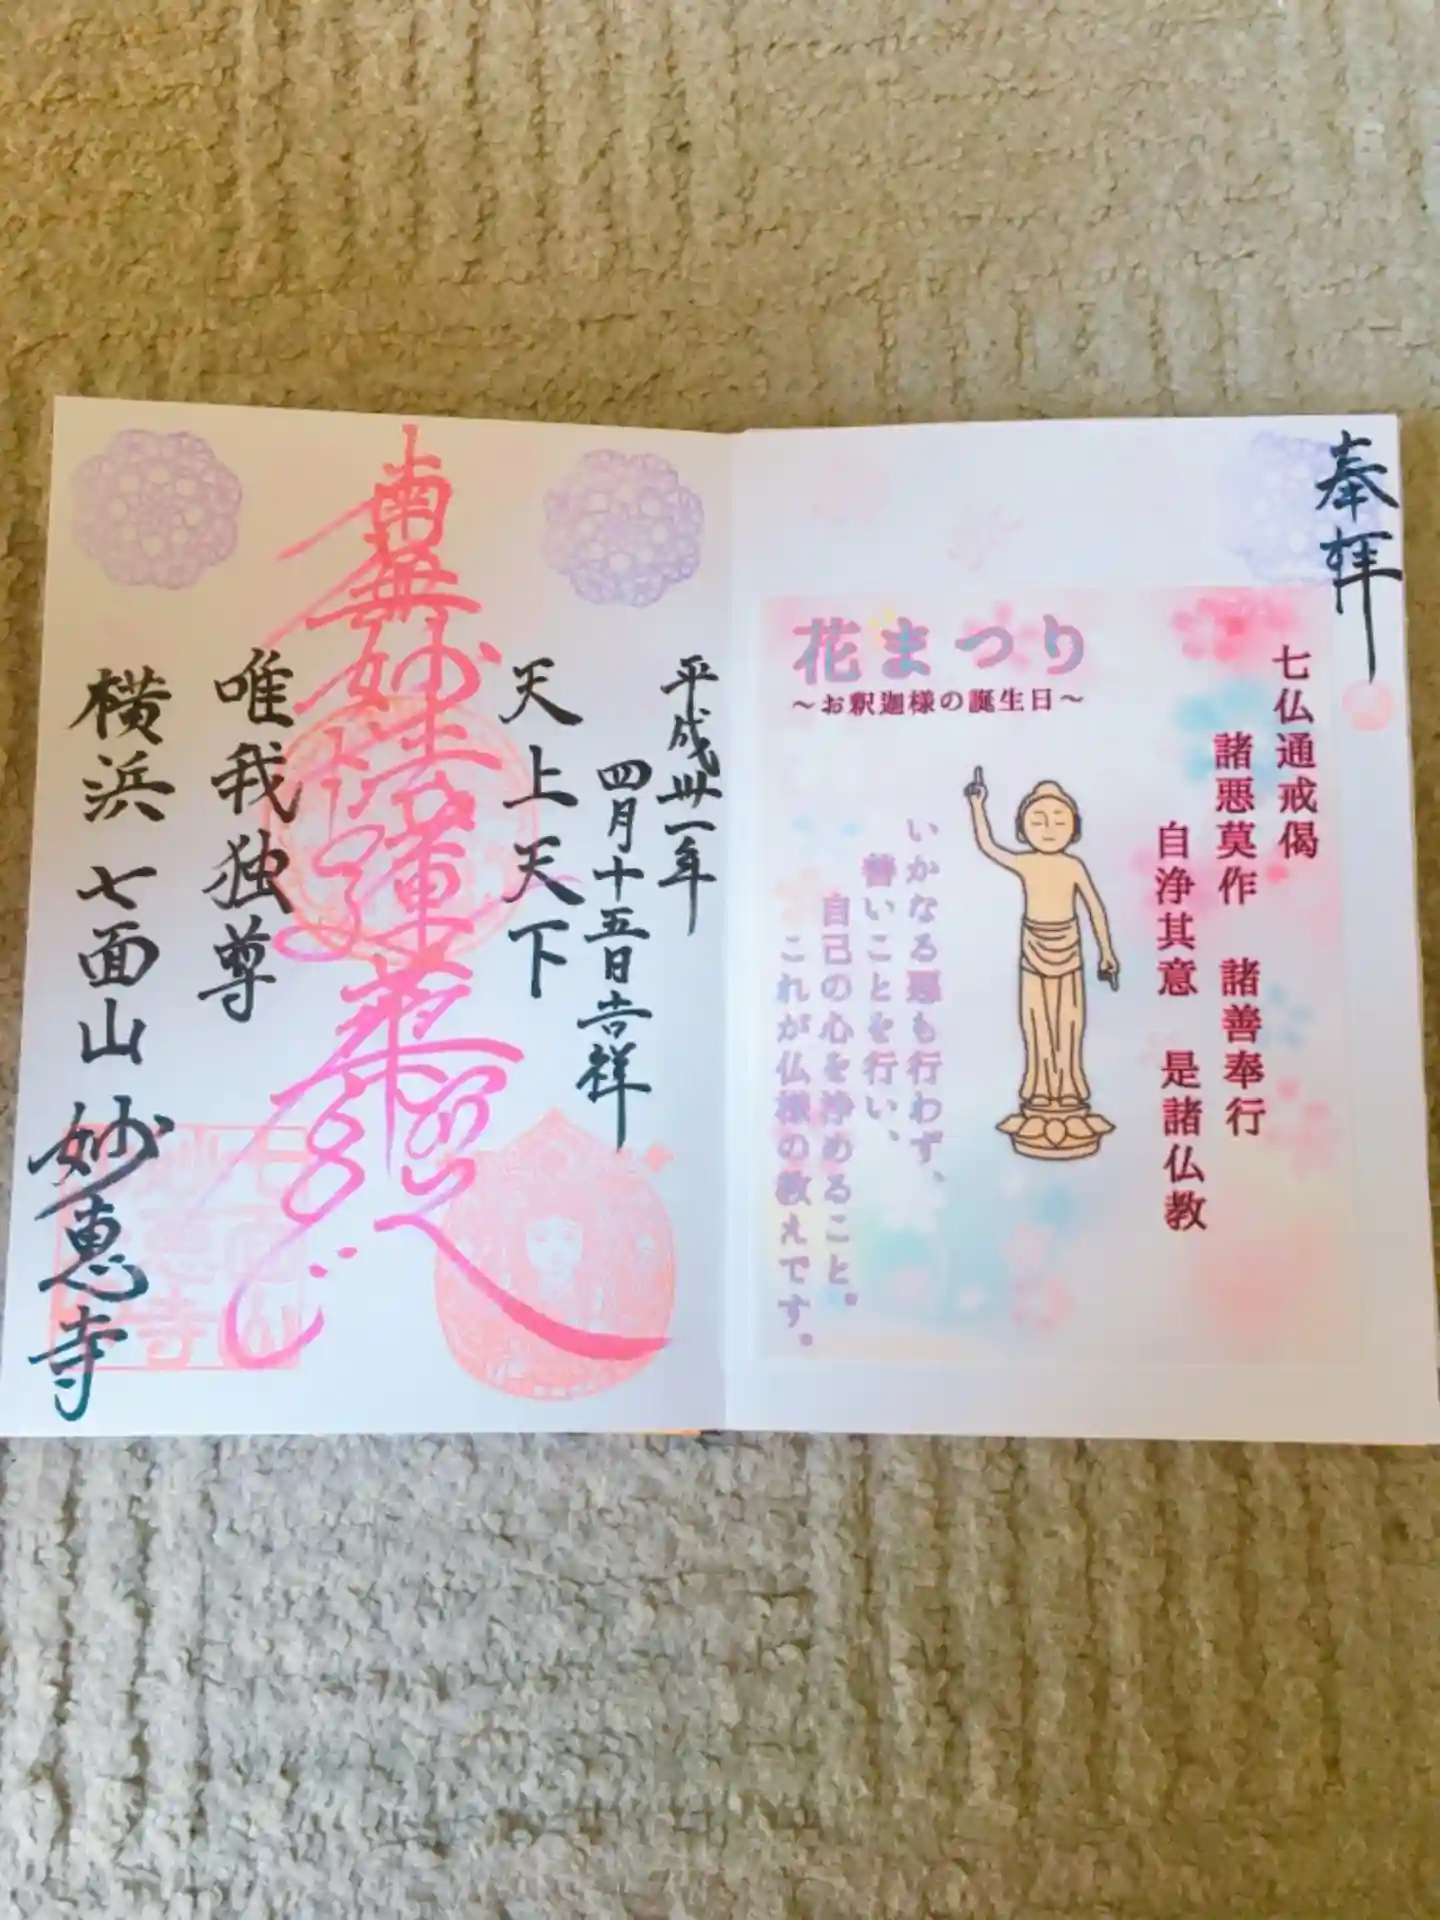 奉拝
七仏通戒偈
諸悪莫作 諸善奉行
自浄其意 是諸仏教
花まつり
～お釈迦様の誕生日～
いかなる悪も行わず、
善いことを行い、
自己の心を浄めること。
これが仏様の教えです。
平成卅一年
四月十五日吉祥
天上天下
南無妙法蓮華経
唯我独尊
横浜 七面山 妙恵寺